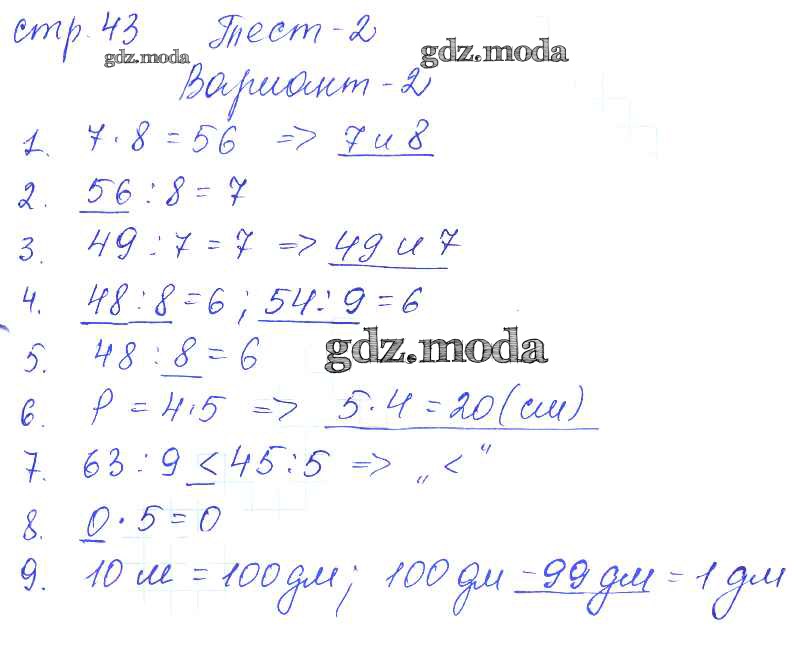 стр. 43 Тест - 2
gdz.moda gdz.moda
Вариант - 2
1. 7 · 8 = 56 => 7 и 8
2. 56 : 8 = 7
3. 49 : 7 = 7 => 49 и 7
4. 48 : 8 = 6 ; 54 : 9 = 6
5. 48 : 8 = 6 gdz.moda
6. P = 4 · 5 => 5 · 4 = 20 (см)
7. 63 : 9 < 45 : 5 => „ < “
8. 0 · 5 = 0
9. 10 м = 100 дм ; 100 дм - 99 дм = 1 дм